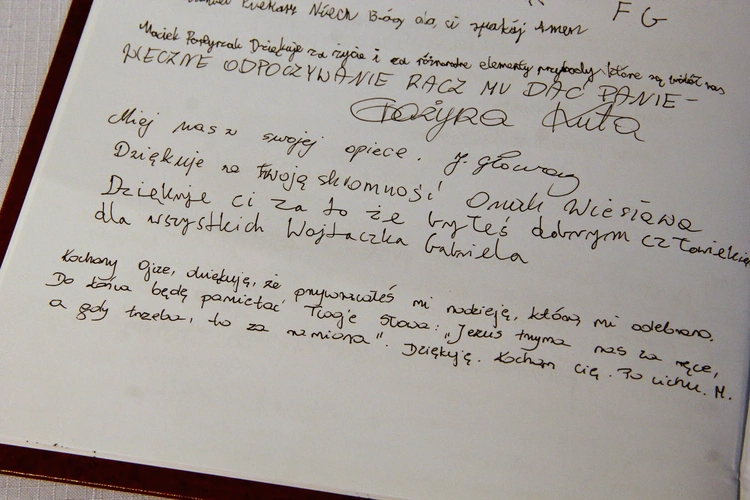 Niech Bóg da, ci spokój Amen
F G
Maciek Dziękuje za życie i za różnorodne elementy przyrody, które są wśród nas
WIECZNE ODPOCZYWANIE RACZ MU DAĆ PANIE –
Grażyna Kuta
Miej nas w swojej opiece. J. Głowacz
Dziękuje za twoją skromność Omak Wiesława
Dziękuje ci za to że byłeś dobrym człowiekie
dla wszystkich Wojtaczka Gabriela
Kochany Ojcze, dziękuję, że przywracałeś mi nadzieję, którą mi odebrano.
Do końca będę pamiętać Twoje słowa: „Jezus trzyma nas za ręce,
a gdy trzeba, to za ramiona". Dziękuję. Kocham cię. Po cichu. M.